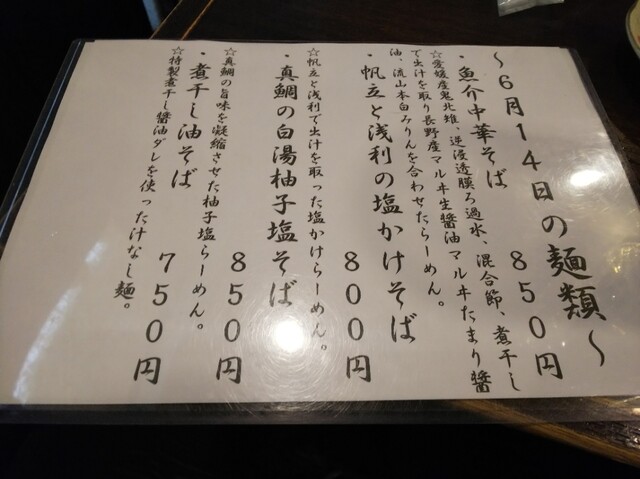 ～６月１４日の麺類～
・魚介中華そば　８５０円
☆愛媛産鬼北雉、逆浸透膜ろ過水、混合節、煮干し
で出汁を取り長野産マルヰ生醤油マルヰたまり醤
油、流山本白みりんを合わせたらーめん。
・帆立と浅利の塩かけそば　８００円
☆帆立と浅利で出汁を取った塩かけらーめん。
・真鯛の白湯柚子塩そば　８５０円
☆真鯛の旨味を凝縮させた柚子塩らーめん。
・煮干し油そば　７５０円
☆特製煮干し醤油ダレを使った汁なし麺。